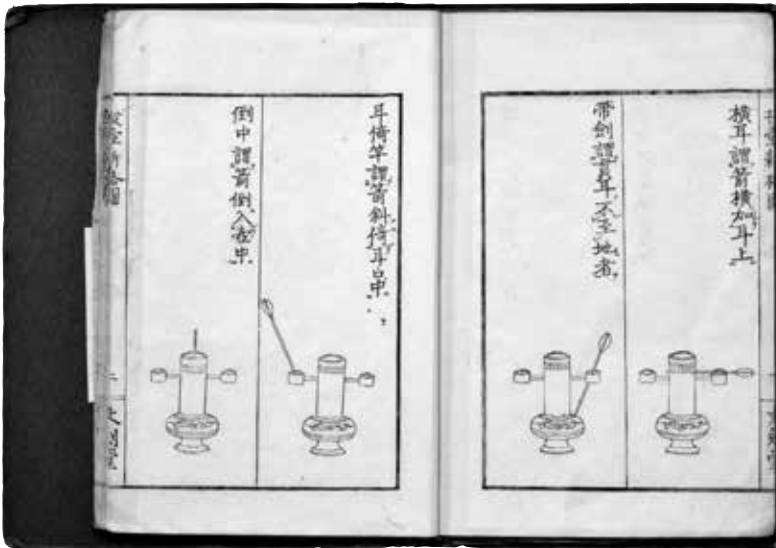 橫耳謂箭橫加耳上
帶劍謂貫耳不至地者
耳倚竿謂箭斜倚耳口中
倒中謂箭倒入壺中